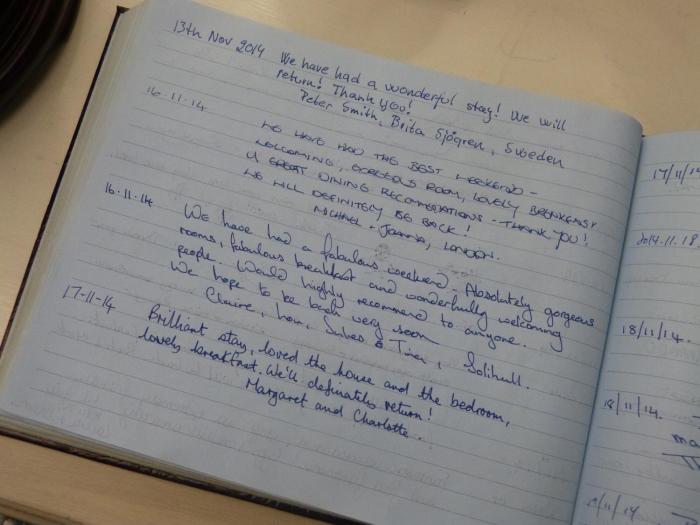 13th Nov 2014 We have had a wonderful stay! We will
return! Thank you!
Peter Smith, Brita Sjögren, Sweden
16.11.14
WE HAVE HAD THE BEST WEEKEND -
WELCOMING, GORGEOUS ROOM, LOVELY BREAKFAST
GREAT DINING RECOMMENDATIONS - THANK YOU!
WE WILL DEFINITELY BE BACK!
MICHAEL + JOANNA, LONDON.
16.11.14
We have had a fabulous weekend. Absolutely gorgeous
rooms, fabulous breakfast and wonderfully welcoming
people. Would highly recommend to anyone.
We hope to be back very soon
Claire, Solihull.
17-11-14
Brilliant stay, loved the house and the bedroom,
lovely breakfast. We'll definately return!
Margaret and Charlotte.
17/11/14
2014.11.18.
18/11/14.
18/11/14.
ma